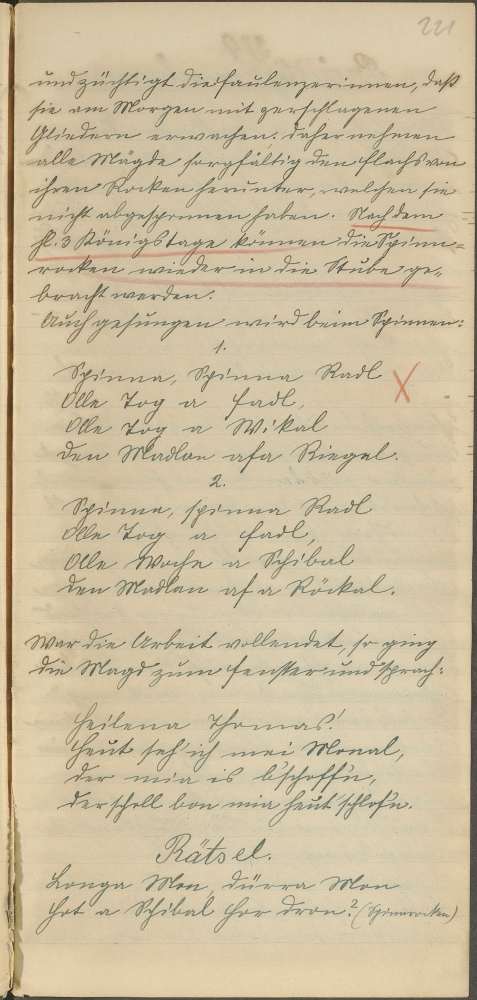 221
und züchtigt die Faulenzerinnen, daß
sie am Morgen mit zerschlagenen
Gliedern erwachen. daher nehmen
alle Mägde sorgfältig den Flachs von
ihren Rocken herunter, welchen sie
nicht abgesponnen haben. Nach dem
hl. 3 Königstage können die Spinn-
rocken wieder in die Stube ge-
bracht werden.
Auch gesungen wird beim Spinnen:
1.
Spinna, Spinna Radl X
Olle Tog a Fadl,
Olle Tog a Wikal
den Madlan afa Riegel.
2.
Spinna, spinna Radl
Olle Tog a Fadl,
Olle Woche a Schibal
den Madlan af a Röckal.
War die Arbeit vollendet, so ging
die Magd zum Fenster und sprach:
Heilena Thomas!
Heut seh' ich mei Monal,
der mia is b'schoff'n,
der scholl bon mia heut schlof'n.
Rätsel.
Longa Mon, dürra Mon
Hot a Schibal Hor dron? (Spinnrocken)